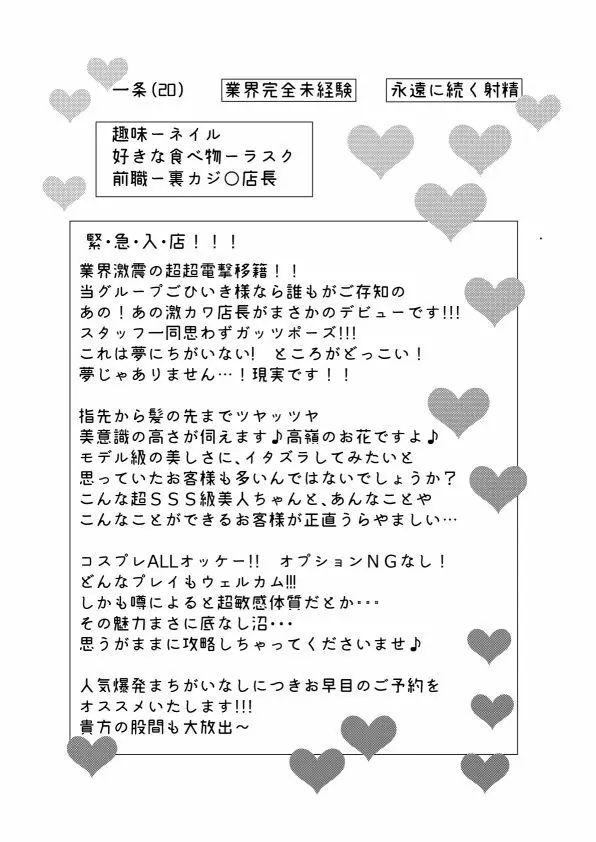 一条(20)　業界完全未経験　永遠に続く射精
趣味ーネイル
好きな食べ物ーラスク
前職ー裏カジ〇店長
緊・急・入・店！！！
業界激震の超超電撃移籍！！
当グループごひいき様なら誰もがご存知の
あの！あの激カワ店長がまさかのデビューです!!!
スタッフ一同思わずガッツポーズ!!!
これは夢にちがいない!　ところがどっこい！
夢じゃありません…！現実です！！
指先から髪の先までツヤッツヤ
美意識の高さが伺えます♪高嶺のお花ですよ♪
モデル級の美しさに、イタズラしてみたいと
思っていたお客様も多いんではないでしょうか？
こんな超ＳＳＳ級美人ちゃんと、あんなことや
こんなことができるお客様が正直うらやましい…
コスプレALLオッケー!!　オプションＮＧなし！
どんなプレイもウェルカム!!!
しかも噂によると超敏感体質だとか・・・
その魅力まさに底なし沼・・・
思うがままに攻略しちゃってくださいませ♪
人気爆発まちがいなしにつきお早目のご予約を
オススメいたします!!!
貴方の股間も大放出～